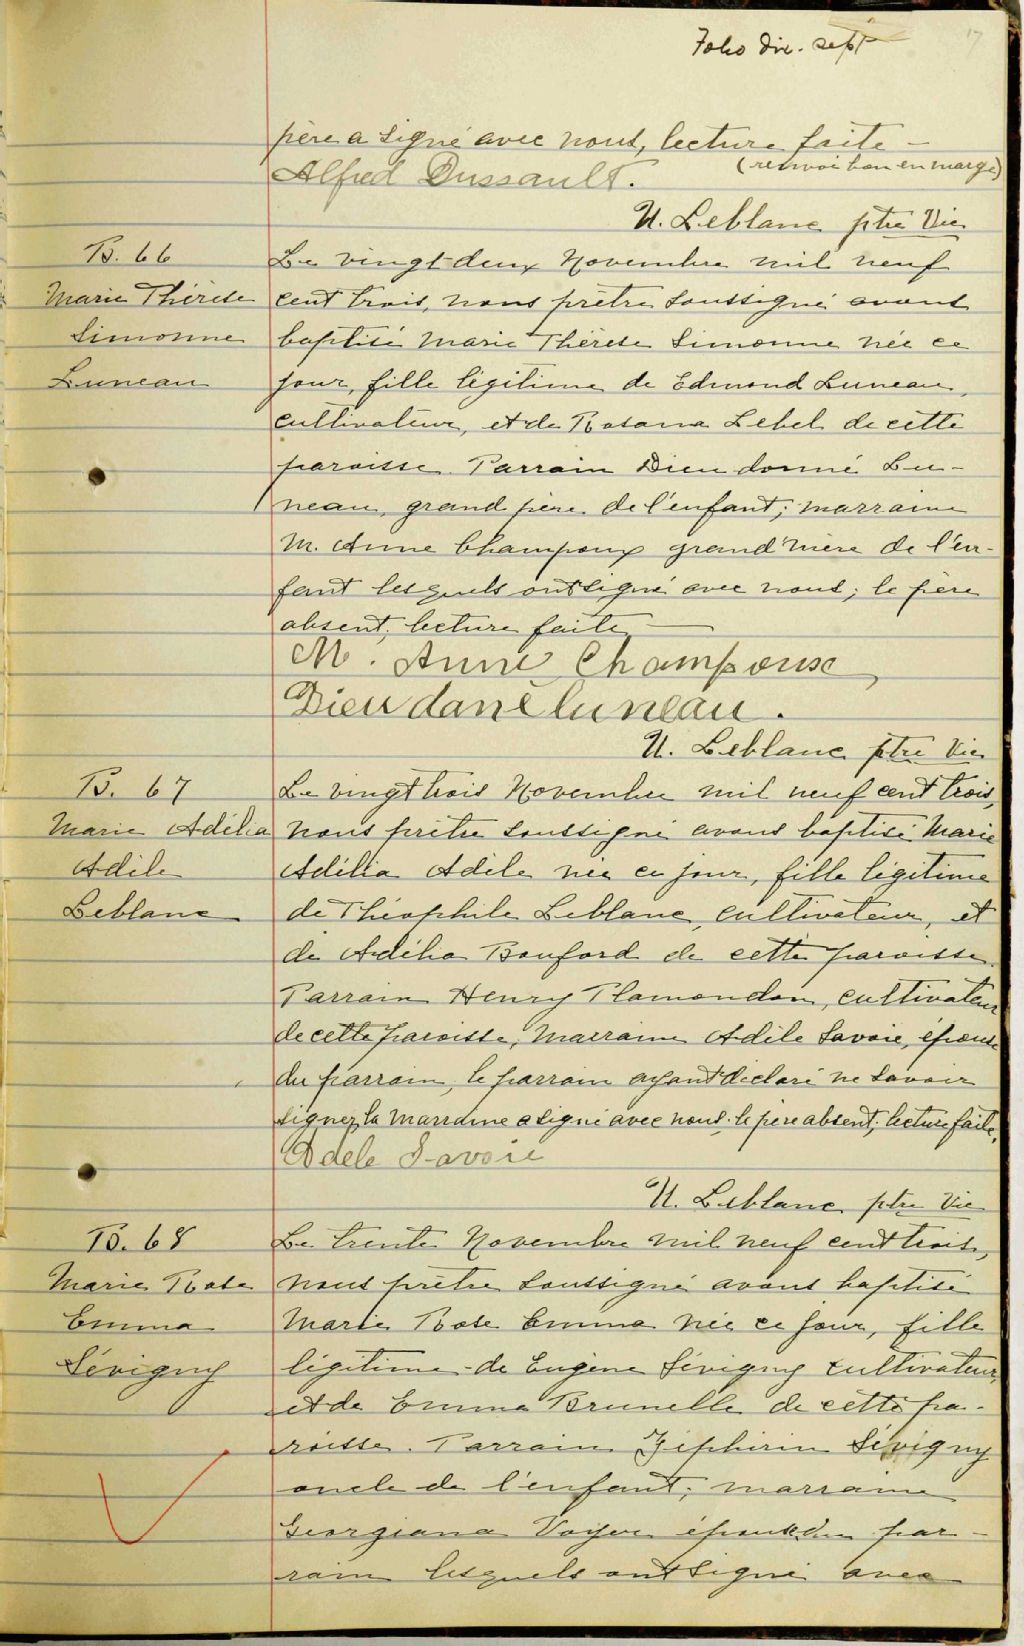 Folio dix-sept
17
père a signé avec nous, lecture faite —
(renvoi bon en marge)
Alfred Dussault.
U. Leblanc ptre Vic
B. 66
Marie Thérèse
Simonne
Luneau
Le vingt-deux Novembre mil neuf
cent trois, nous prêtre soussigné avons
baptisé Marie Thérèse Simonne née ce
jour, fille légitime de Edmond Luneau,
cultivateur, et de Rosana Lebel de cette
paroisse. Parrain Dieudonné Lu-
neau, grand père de l'enfant; marraine
M. Anne Champoux grand'mère de l'en-
fant lesquels ont signé avec nous; le père
absent; lecture faite —
M. Anne Champoux
Dieudané luneau.
U. Leblanc ptre Vic
B. 67
Marie Adélia
Adèle
Leblanc
Le vingt trois Novembre mil neuf cent trois,
nous prêtre soussigné avons baptisé Marie
Adélia Adèle née ce jour, fille légitime
de Théophile Leblanc, cultivateur, et
de Adélia Bouford de cette paroisse.
Parrain Henry Plamondon, cultivateur
de cette paroisse, Marraine Adèle Savoie, épouse
du parrain, le parrain ayant déclaré ne savoir
signer, la marraine a signé avec nous; le père absent; lecture faite,
Adele Savoie
U. Leblanc ptre Vic
B. 68
Marie Rose
Emma
Sévigny
Le trente Novembre mil neuf cent trois,
nous prêtre soussigné avons baptisé
Marie Rose Emma née ce jour, fille
légitime de Eugène Sévigny cultivateur,
et de Emma Brunelle de cette pa-
roisse. Parrain Zéphirin Sévigny
oncle de l'enfant; marraine
Georgiana Voyer épouse du par-
rain lesquels ont signé avec